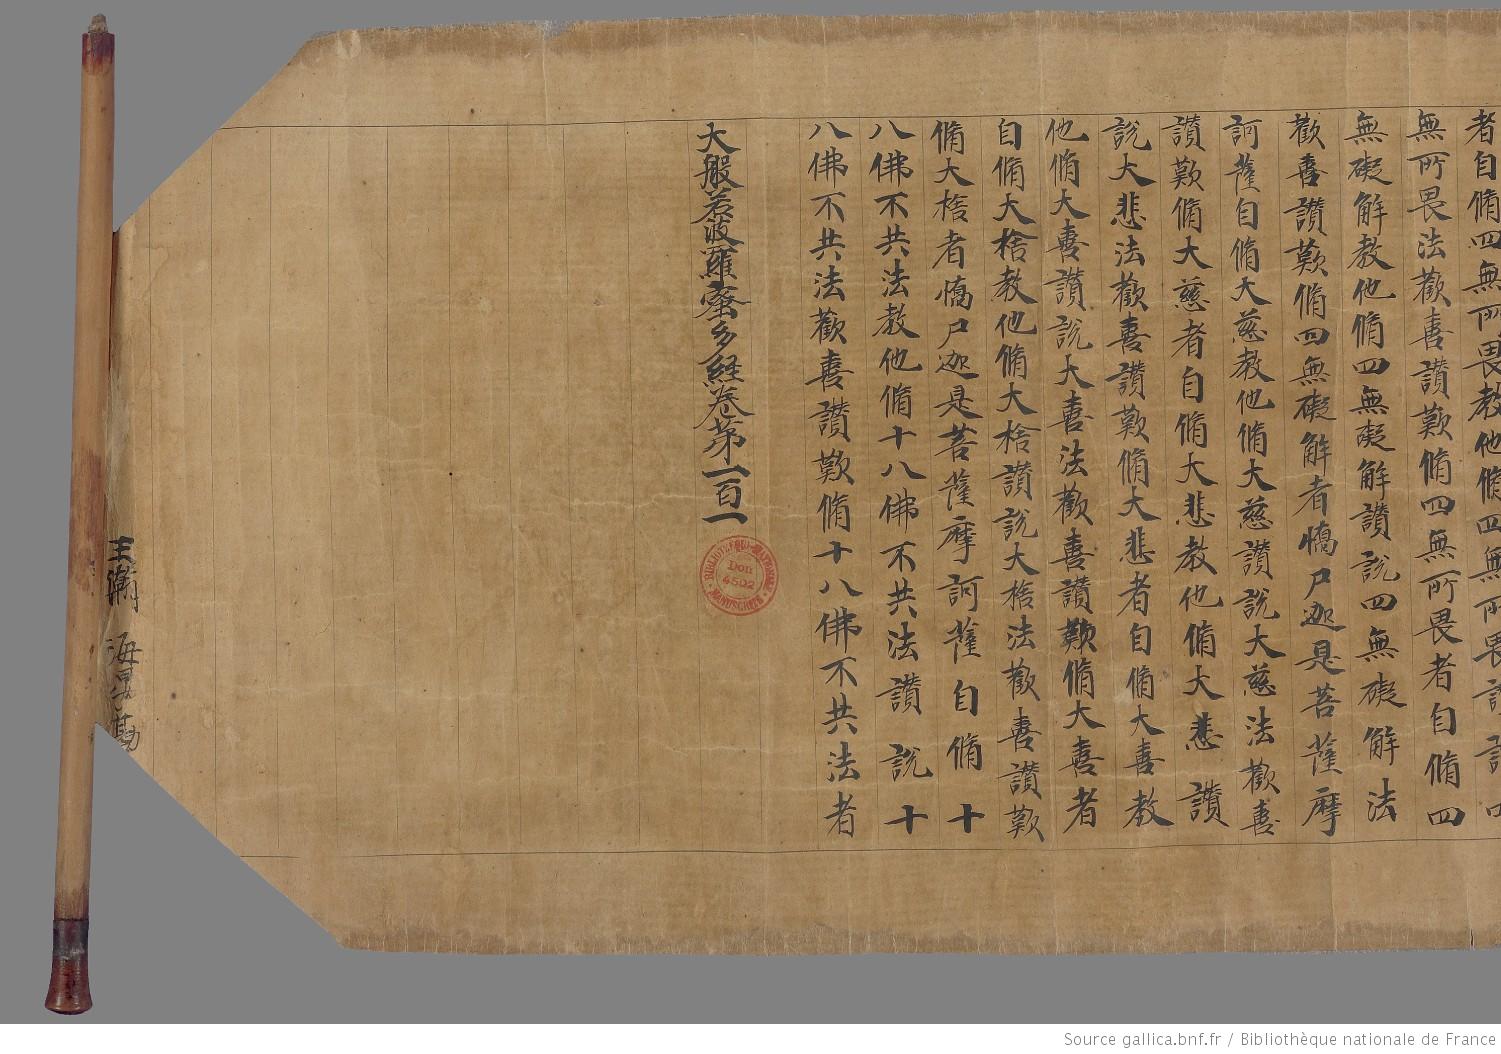 者自脩四無所畏教他脩四無所畏讃説四
無所畏法歡喜讃歎脩四無所畏者自脩四
無礙解教他脩四無礙解讃説四無礙解法
歡喜讃歎脩四無礙解者憍尸迦是菩薩摩
訶薩自脩大慈教他脩大慈讃説大慈法歡喜
讃歎脩大慈者自脩大悲教他脩大悲讃
説大悲法歡喜讃歎脩大悲者自脩大喜教
他脩大喜讃説大喜法歡喜讃歎脩大喜者
自脩大捨教他脩大捨讃説大捨法歡喜讃歎
脩大捨者憍尸迦是菩薩摩訶薩自脩十
八佛不共法教他脩十八佛不共法讃説十
八佛不共法歡喜讃歎脩十八佛不共法者
大般若波羅蜜多経卷第一百一
王瀚 海晏勘
BIBLIOTHÈQUE NATIONALE
Don
4502
MANUSCRITS
Source gallica.bnf.fr / Bibliothèque nationale de France